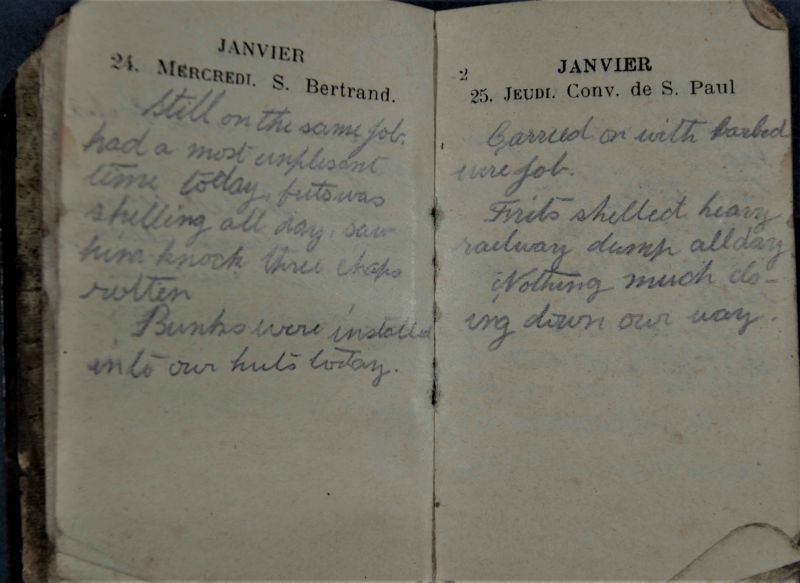 JANVIER
24. MERCREDI. S. Bertrand.
Still on the same job,
had a most unplesant
time today, frits was
shelling all day, saw
him knock three chaps
rotten
Bunks were installed
into our huts today.
2
JANVIER
25. JEUDI. Conv. de S. Paul
Carried on with barbed
wire job.
Frits shelled heavy
railway dump all day
Nothing much do-
ing down our way.